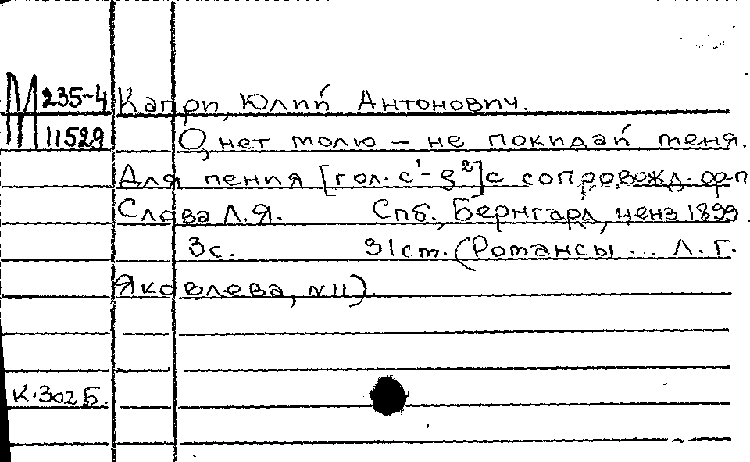 М 235-4 Капри, Юлий Антонович.
11529 О, нет молю – не покидай меня.
Для пения [гол. c¹-g²] с сопровожд. ф-п
Слова Л.Я. Спб., Бернгард, ценз 1899.
3с. 31см. (Романсы ... Л. Г.
Яковлева, №11).
К.302Б.